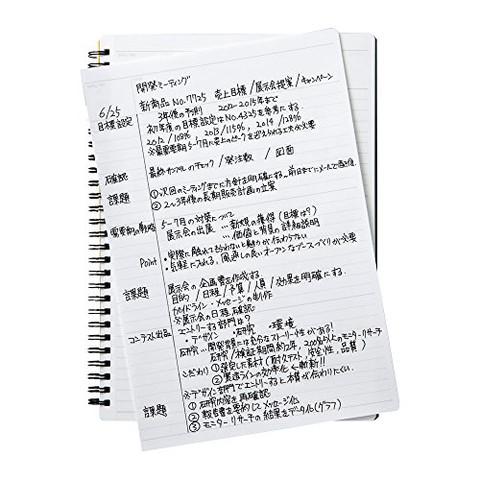 開発ミーティング
6/25 新商品 No.7725 売上目標/展示会提案/キャンペーン
目標設定 2年後の予測 2012〜2015年まで
初年度の目標設定はNo.4325を参考にする
2012/108%, 2013/115%, 2014/128%
※最重要期5〜7月に売上のピークを迎えられる工夫が必要
確認 最終サンプルのチェック/発注数 /図面
課題 ①次回のミーティングまでに方針を明確にする。前日までにメールで
② 2〜3年後の長期販売計画の立案
5〜7月の対策について
展示会の出展 … 新規の獲得(目標は?)
… 価値と背景の詳細説明
Point ・実際に触れてもらわないと魅力が伝わらない
・気軽に入れる、風通しの良いオープンなブースづくりが必要
課題 展示会の企画書を作成する
目的/日程/予算/人員/効果を明確にする。
ガイドライン・メッセージの制作
※展示会の日程確認
コンテスト出品 エントリーする部門は?
・デザイン ・研究 ・環境
研究… 開発背景には充分なストーリー性がある!
研究/検証期間約2年, 200名以上のモニターリサーチ
こだわり ①選定した素材(耐久テスト, 安全性, 品質)
②製造ラインの効率化 ←斬新!!
※デザイン部門でエントリーすると本質が伝わりにくい。
課題 ① 研究内容を再確認
② 報告書を要約してメッセージ化
③ モニターリサーチの結果をデータ化(グラフ)